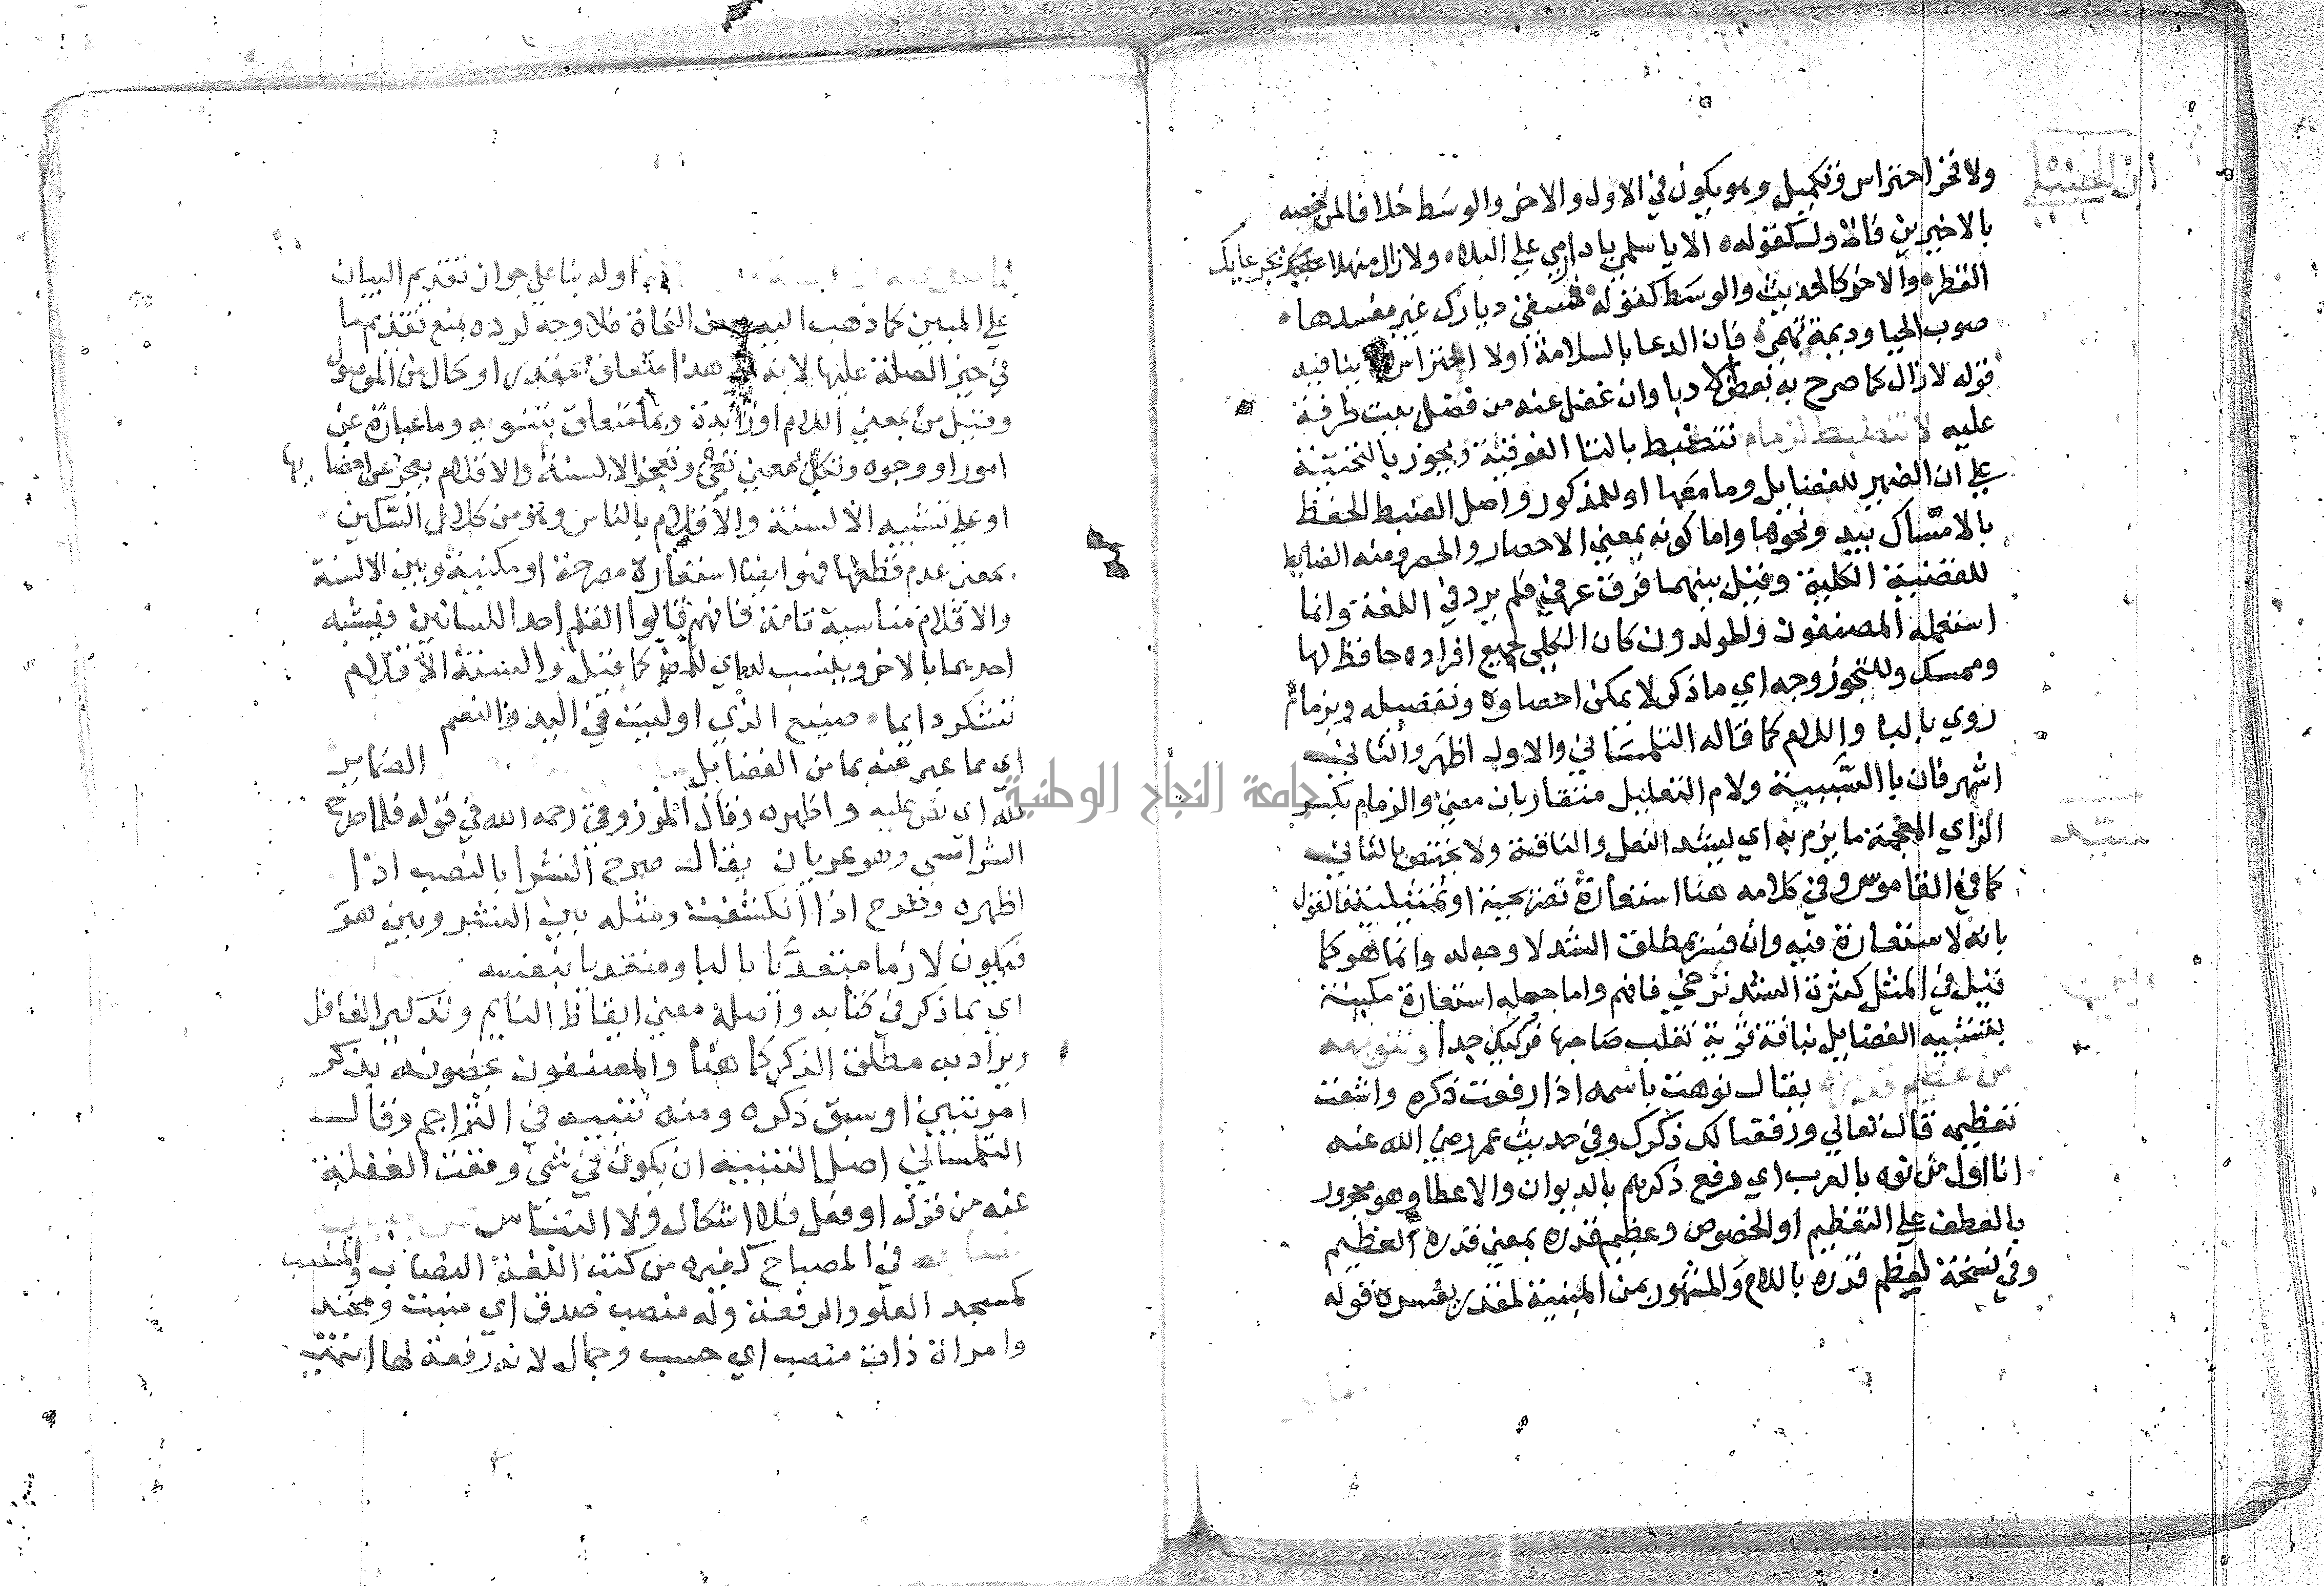 ولا فخر احتراس وتكميل وهو يكون في الاول والاخر والوسط خلافا لمن خصه
بالاخيرين فالاول كقوله الا يا اسلمي يا دارمي على البلاء ولا زال منهلا بجرعايك
القطر والاخر كالحديث والوسط كقوله فسقى ديارك غير مفسدها
صوب الحيا وديمة تهمي فان الدعا بالسلامة اولا احتراس ينافيه
قوله لا زال كما صرح به بعض الادبا وان غفل عنه من فضل بيت طرفة
عليه لا تنضبط لزمام تنضبط بالتا الفوقية ويجوز بالتحتية
على ان الضمير للفضايل وما معها او للمذكور واصل الضبط الحفظ
بالامساك بيد ونحوها واما كونه بمعنى الاحصار والحصر ومنه الضابط
للقضية الكلية وقيل بينهما فرق عرفي فلم يرد في اللغة وانما
استعمله المصنفون والمولدون كان الكلي لجميع افراده حافظ لها
وممسك وللتجوز وجه اي ما ذكر لا يمكن احصاوه وتفصيله وبزمام
روي بالبا واللام كما قاله التلمساني والاول اظهر والثاني
اشهر فان با السببية ولام التعليل متقاربان معنى والزمام بكسر
الزاي المعجمة ما يزم به اي ليشد النعل والناقة ولا يختص بالثاني
كما في القاموس وفي كلامه هنا استعارة تصريحية او تمثيلية فالقول
بانه لا استعارة فيه وان فسر بمطلق الشد لا وجه له وانما هو كما
قيل في المثل كعثرة الشد ترخي فافهم واما جعله استعارة مكنية
بتشبيه الفضايل بناقة قوية تغلب صاحبها فركيك جدا وتنويهه
من عظيم قدره يقال نوهت باسمه اذا رفعت ذكره واشعت
تعظيمه قال تعالى ورفعنا لك ذكرك وفي حديث عمر رضي الله عنه
انا اول من نوه بالعرب اي رفع ذكرهم بالديوان والاعطا وهو مجرور
بالعطف على التعظيم او الخصوص وعظيم قدره بمعنى قدره العظيم
وفي نسخة لعظم قدره باللام والمشهور بمن المبنية لمقدر يفسره قوله
اوله بنا على جواز تقديم البيان
على المبين كما ذهب اليه بعض النحاة فلا وجه لرده بمنع تقديم ما
في حيز الصلة عليها لانه هذا متعلق بمقدر او حال من الموصول
وقيل من بمعنى اللام او زايدة وبما متعلق بتنويه وما عبارة عن
امور او وجوه وتكل بمعنى تعي وتعجز الالسنة والاقلام بعجز عن احصايها
او على تشبيه الالسنة والاقلام بالناس وهو من كلال السكين
بمعنى عدم قطعها فهو ايضا استعارة مصرحة او مكنية وبين الالسنة
والاقلام مناسبة تامة فانهم قالوا القلم احد اللسانين فيشبه
احدهما بالاخر وينسب لهما كما قيل والسنة الاقلام
تشكر دايما صنيع الذي اوليت في اليد والنعم
اي مما عبر عنه بما من الفضايل الضماير
لله اي نص عليه واظهره وقال المرزوقي رحمه الله في قوله فلما صرح
الشر امسى وهو عريان يقال صرح الشر بالنصب اذا
اظهره وصرح اذا انكشف ومثله بين الشر وبين هو
فيكون لازما متعديا بالبا ومتعديا بنفسه
اي بما ذكر في كتابه واصله معنى ايقاظ النايم وتذكير الغافل
ويراد به مطلق الذكر كما هنا والمصنفون يخصونه بذكر
امر تبين او سبق ذكره ومنه تنبيه في التراجم وقال
التلمساني اصل التنبيه ان يكون في شي وقعت الغفلة
عنه من قول او فعل فلا اشكال ولا التباس
في المصباح كغيره من كتب اللغة النصاب والمنصب
كمسجد العلو والرفعة وله منصب صدق اي منبت ومحتد
وامراة ذات منصب اي حسب وجمال لانه رفعة لها انتهى
جامعة النجاح الوطنية